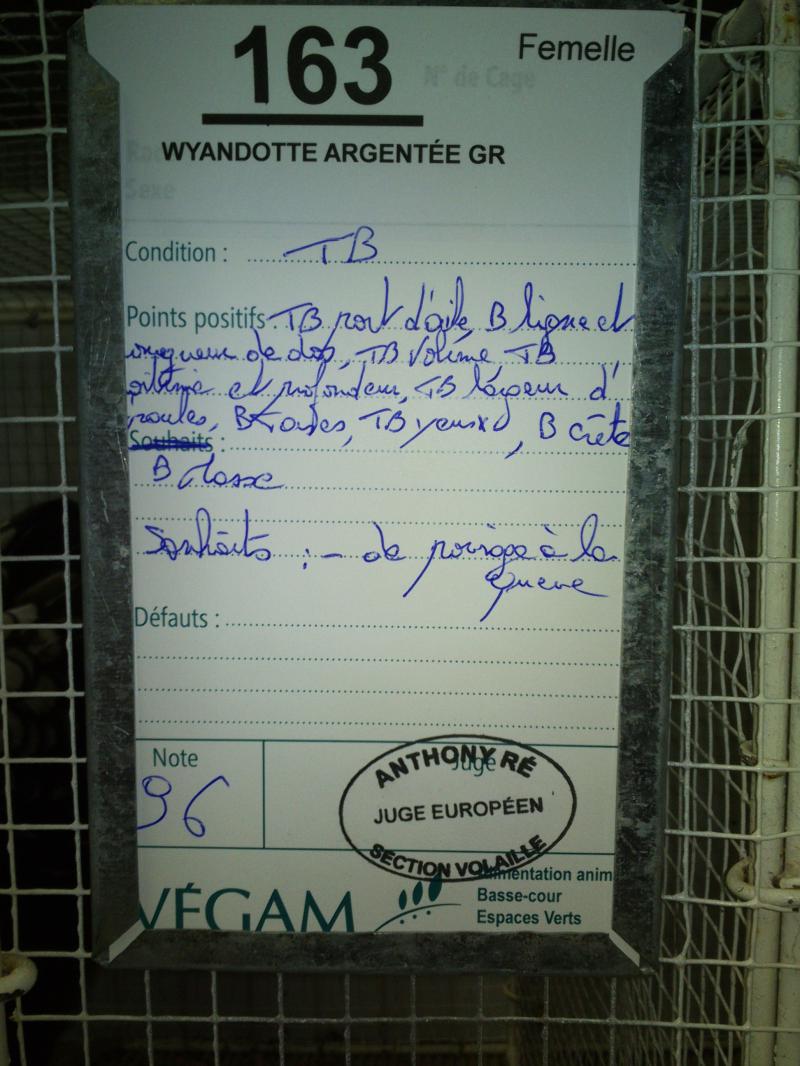 163
Femelle
N° de Cage
WYANDOTTE ARGENTÉE GR
Sexe
Condition : TB
Points positifs : TB port d'aile, B ligne et
longueur de dos, TB Volume TB
poitrine et profondeur, TB largeur d'
, B , TB yeux, B crête
Souhaits :
B
Souhaits : - de à la
queue
Défauts :
Note
Juge
96
ANTHONY RÉ
JUGE EUROPÉEN
SECTION VOLAILLE
VÉGAM
Alimentation anim
Basse-cour
Espaces Verts